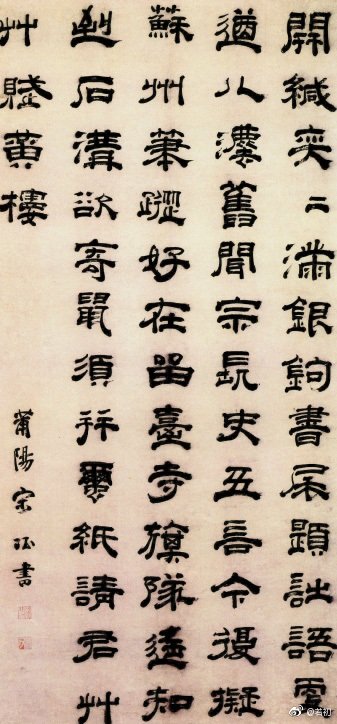 開緘奕二滿銀鉤書尾題詩語更
遒八灋舊聞宗長史五言今復擬
蘇州筆蹤好在留臺寺旗隊遙知
到石溝欲寄鼠須并繭紙請君艸
艸賦黃樓
莆陽宋珏書
@若初